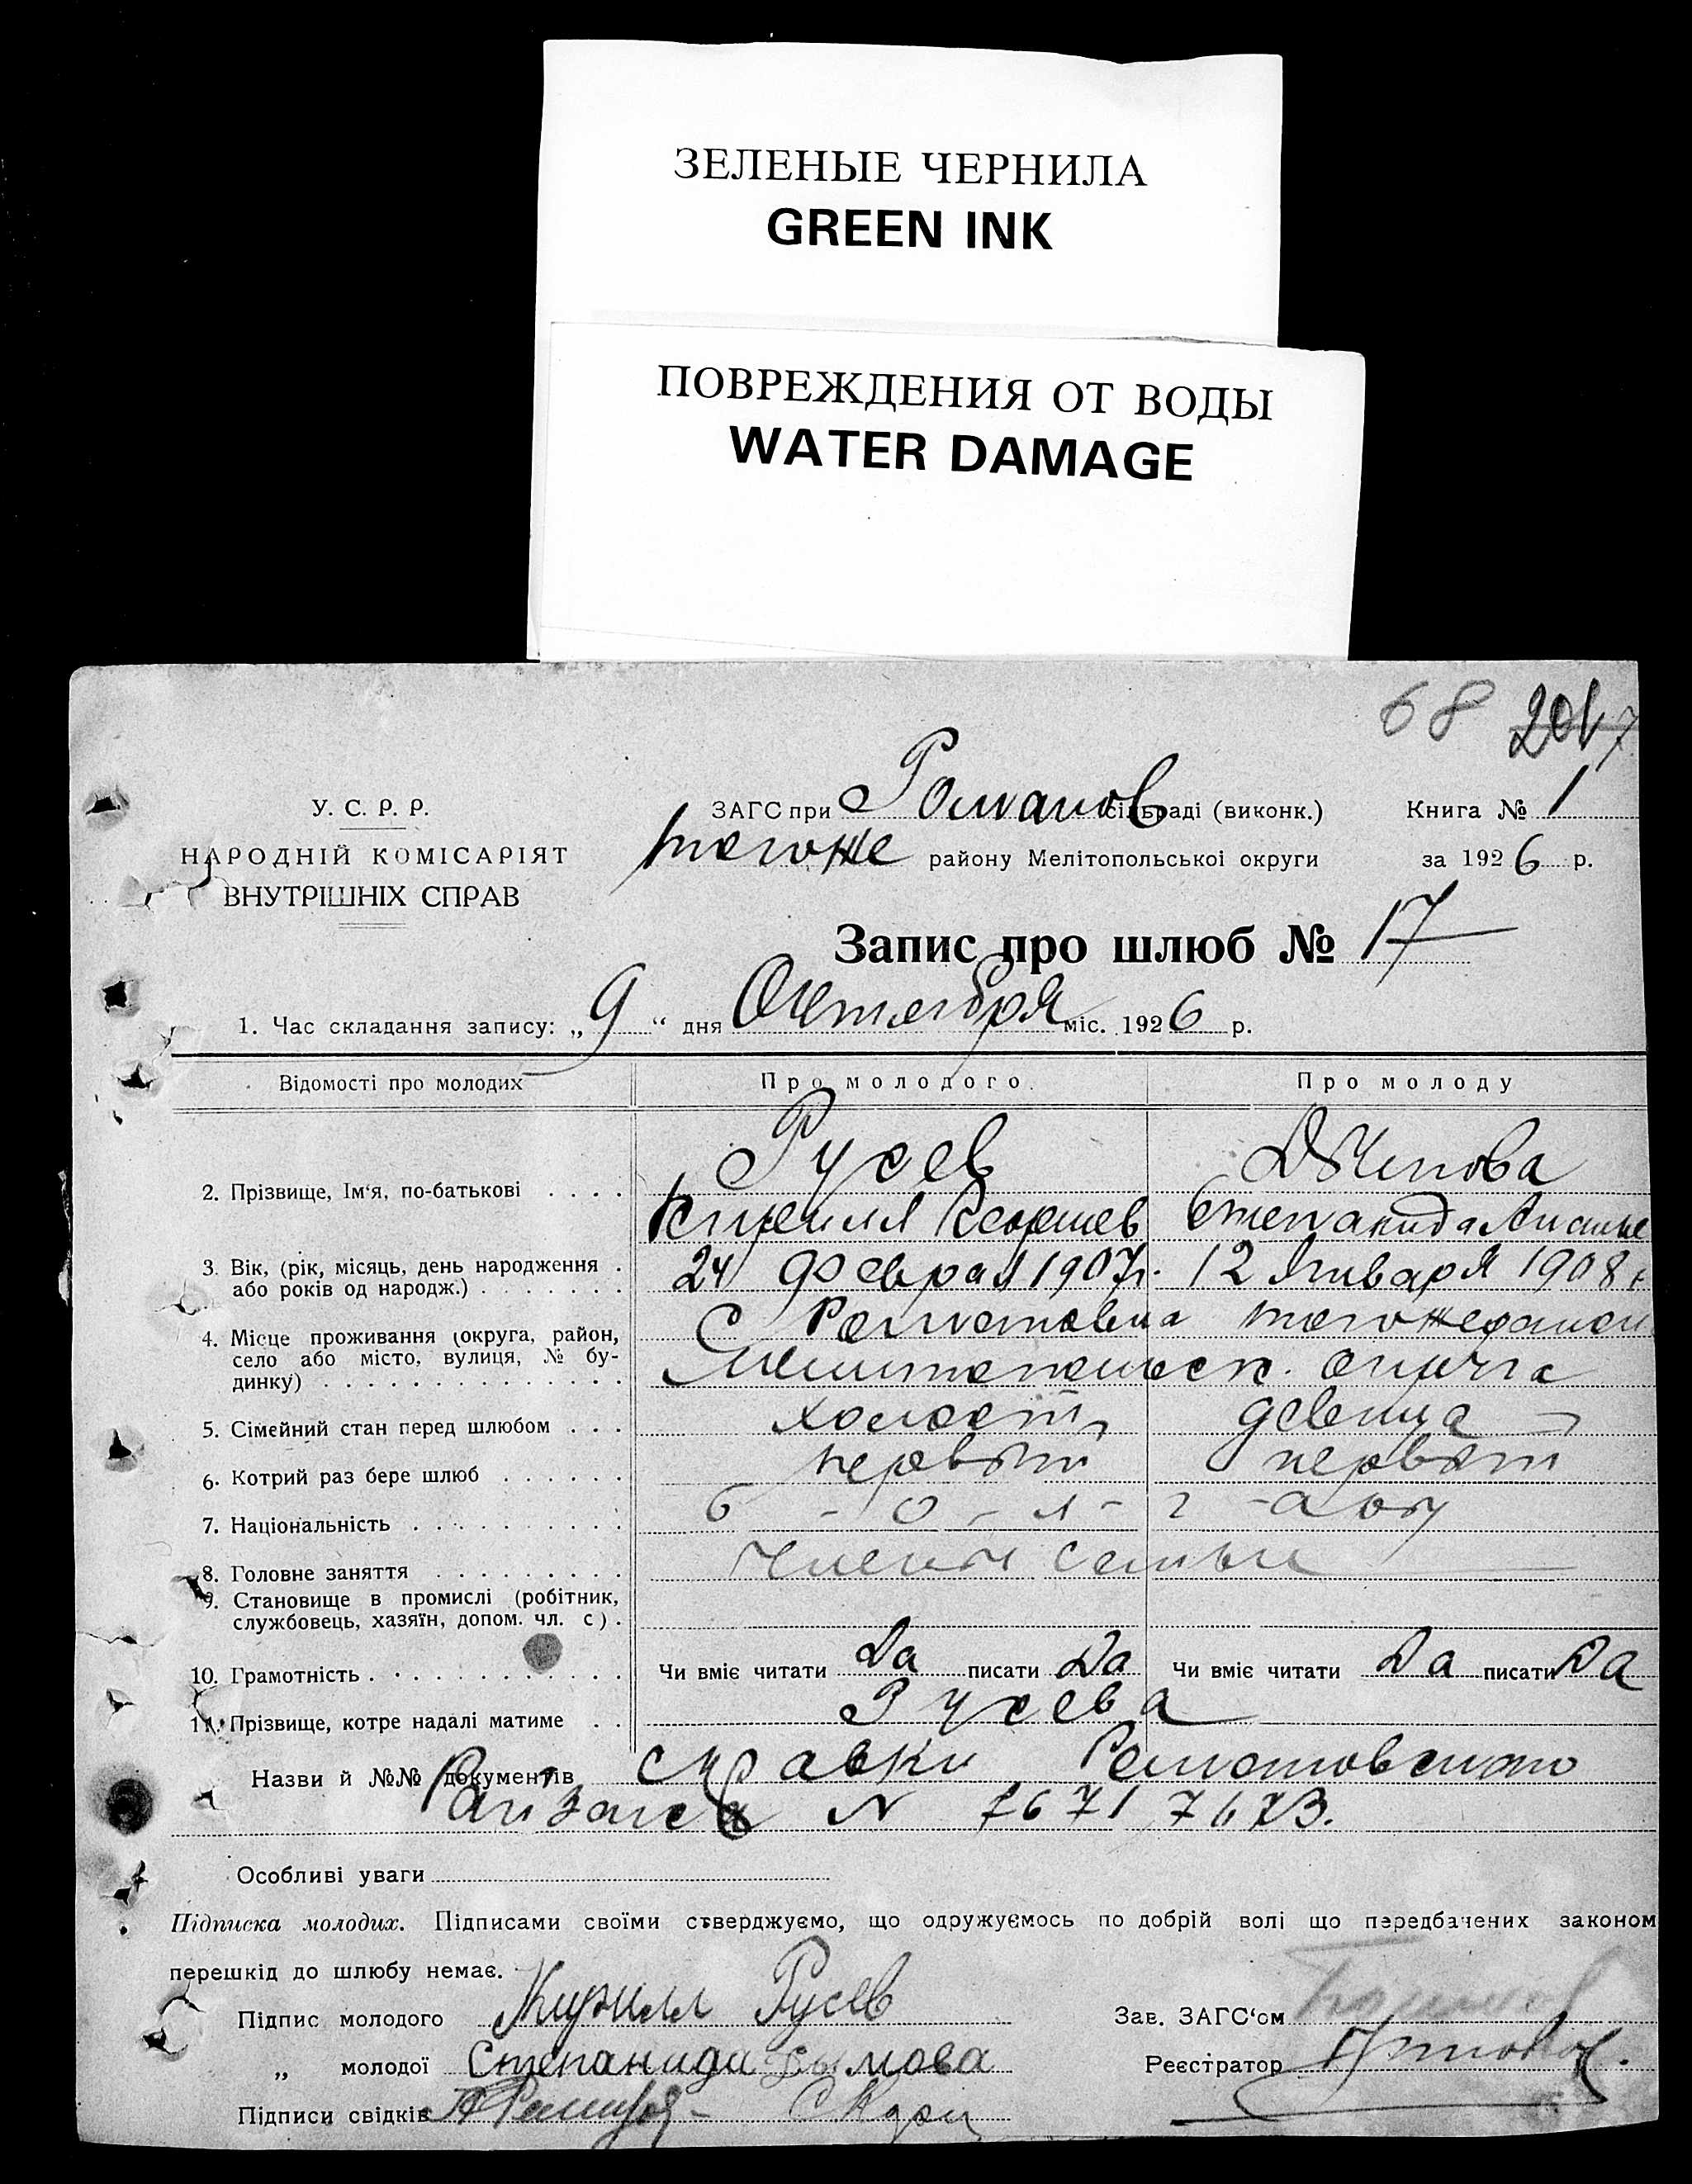 ЗЕЛЕНЫЕ ЧЕРНИЛА
GREEN INK
ПОВРЕЖДЕНИЯ ОТ ВОДЫ
WATER DAMAGE
68 2017
У. С. Р. Р.
НАРОДНІЙ КОМІСАРІЯТ
ВНУТРІШНІХ СПРАВ
ЗАГС при Романов сільраді (виконк.) Книга № 1
тогоже району Мелітопольської округи за 1926 р.
Запис про шлюб № 17
1. Час складання запису: „9“ дня Октября міс. 1926 р.
Відомості про молодих Про молодого. Про молоду
2. Прізвище, Ім'я, по-батькові . . . . Русев
Кирилл Георгиев Степанида
3. Вік, (рік, місяць, день народження . або років од народж.) . . . . . . . 24 Февраля 1907г. 12 Января 1908 г
4. Місце проживання (округа, район, село або місто, вулиця, № будинку) . . . . . . . . . . . . . С Романовка тогоже
Мелитопольск. округа
5. Сімейний стан перед шлюбом . . . холост девица
6. Котрий раз бере шлюб . . . . . . первый первый
7. Національність . . . . . . . . . . б - о - л - г - а ры
8. Головне заняття . . . . . . . . . Члены семьи
9. Становище в промислі (робітник, службовець, хазяїн, допом. чл. с) .
10. Грамотність . . . . . . . . . . . . Чи вміє читати Да писати Да Чи вміє читати Да писати Да
11. Прізвище, котре надалі матиме . . Русева
Назви й №№ документів справки Романовского
Райзагса N 7671 7673.
Особливі уваги
Підписка молодих. Підписами своїми стверджуємо, що одружуємось по добрій волі що передбачених законом
перешкід до шлюбу немає.
Підпис молодого Кирилл Русев Зав. ЗАГС'ом
„ молодої Степанида Реєстратор
Підписи свідків